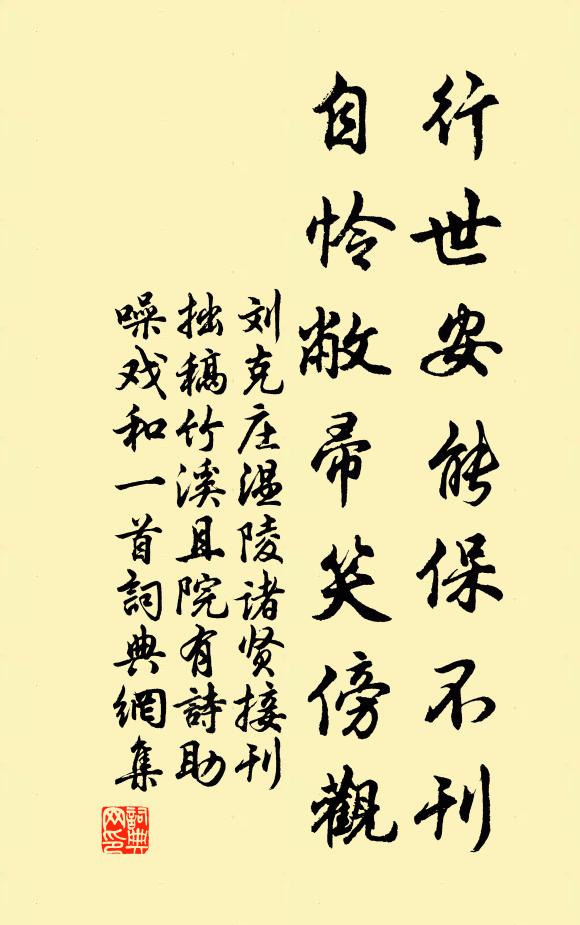 行世安能保不刊
自怜敝帚笑傍觀
刘克庄温陵诸贤接刊
拙稿竹溪且院有詩助
噪戏和一首詞典網集
詞典网印